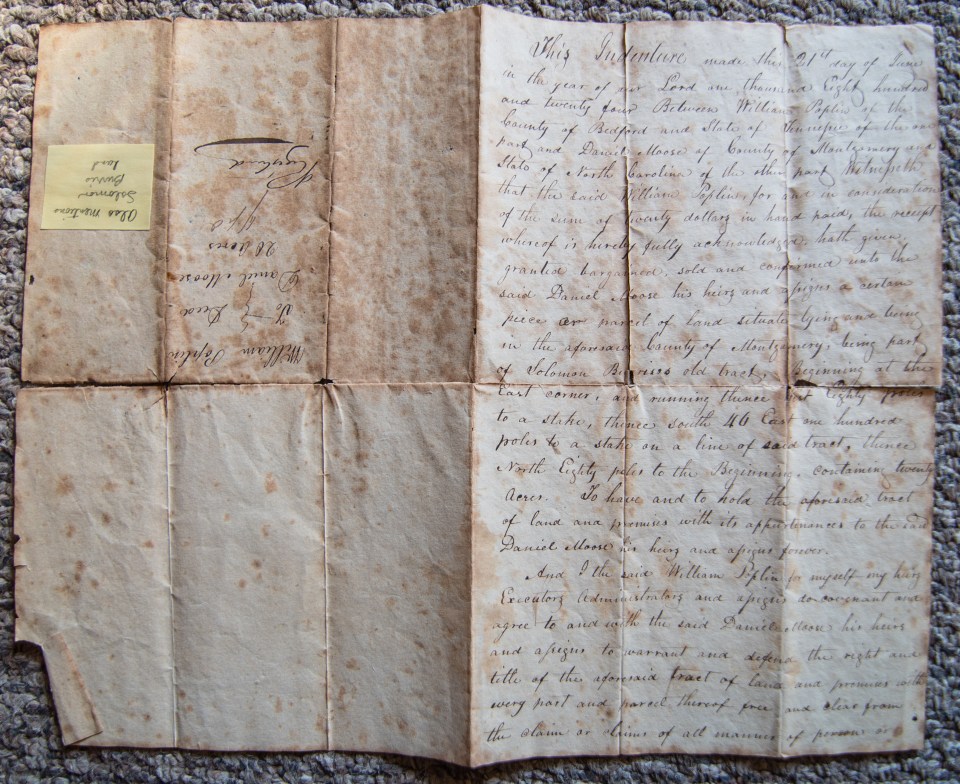 This Indenture made this 21st day of June
in the year of our Lord one thousand Eight hundred
and twenty four Between William Poplin of the
County of Bedford and State of Tennessee of the one
part and Daniel Moose of County of Montgomery and
State of North Carolina of the other part Witnesseth
that the said William Poplin, for and in consideration
of the sum of twenty dollars in hand paid, the receipt
whereof is hereby fully acknowledged, hath given,
granted bargained, sold and confirmed unto the
said Daniel Moose his heirs and assigns a certain
piece or parcel of land situate lying and being
in the aforesaid County of Montgomery, being part
of Solomon Burrises old tract, Beginning at the
East corner, and running thence Eighty poles
to a stake, thence south 46 East one hundred
poles to a stake on a line of said tract, thence
North Eighty poles to the Beginning, containing twenty
Acres. To have and to hold the aforesaid tract
of land and promises with its appurtenances to the said
Daniel Moose his heirs and assigns forever.
And I the said William Poplin for myself my heirs
Executors Administrators and assigns do covenant and
agree to and with the said Daniel Moose his heirs
and assigns to warrant and defend the right and
title of the aforesaid tract of land and promises with
every part and parcel thereof free and clear from
the claim or claims of all manner of persons or
William Poplin
To Deed
Daniel Moose
20 Acres
Registered
Also mentions
Solomon
Burris
land